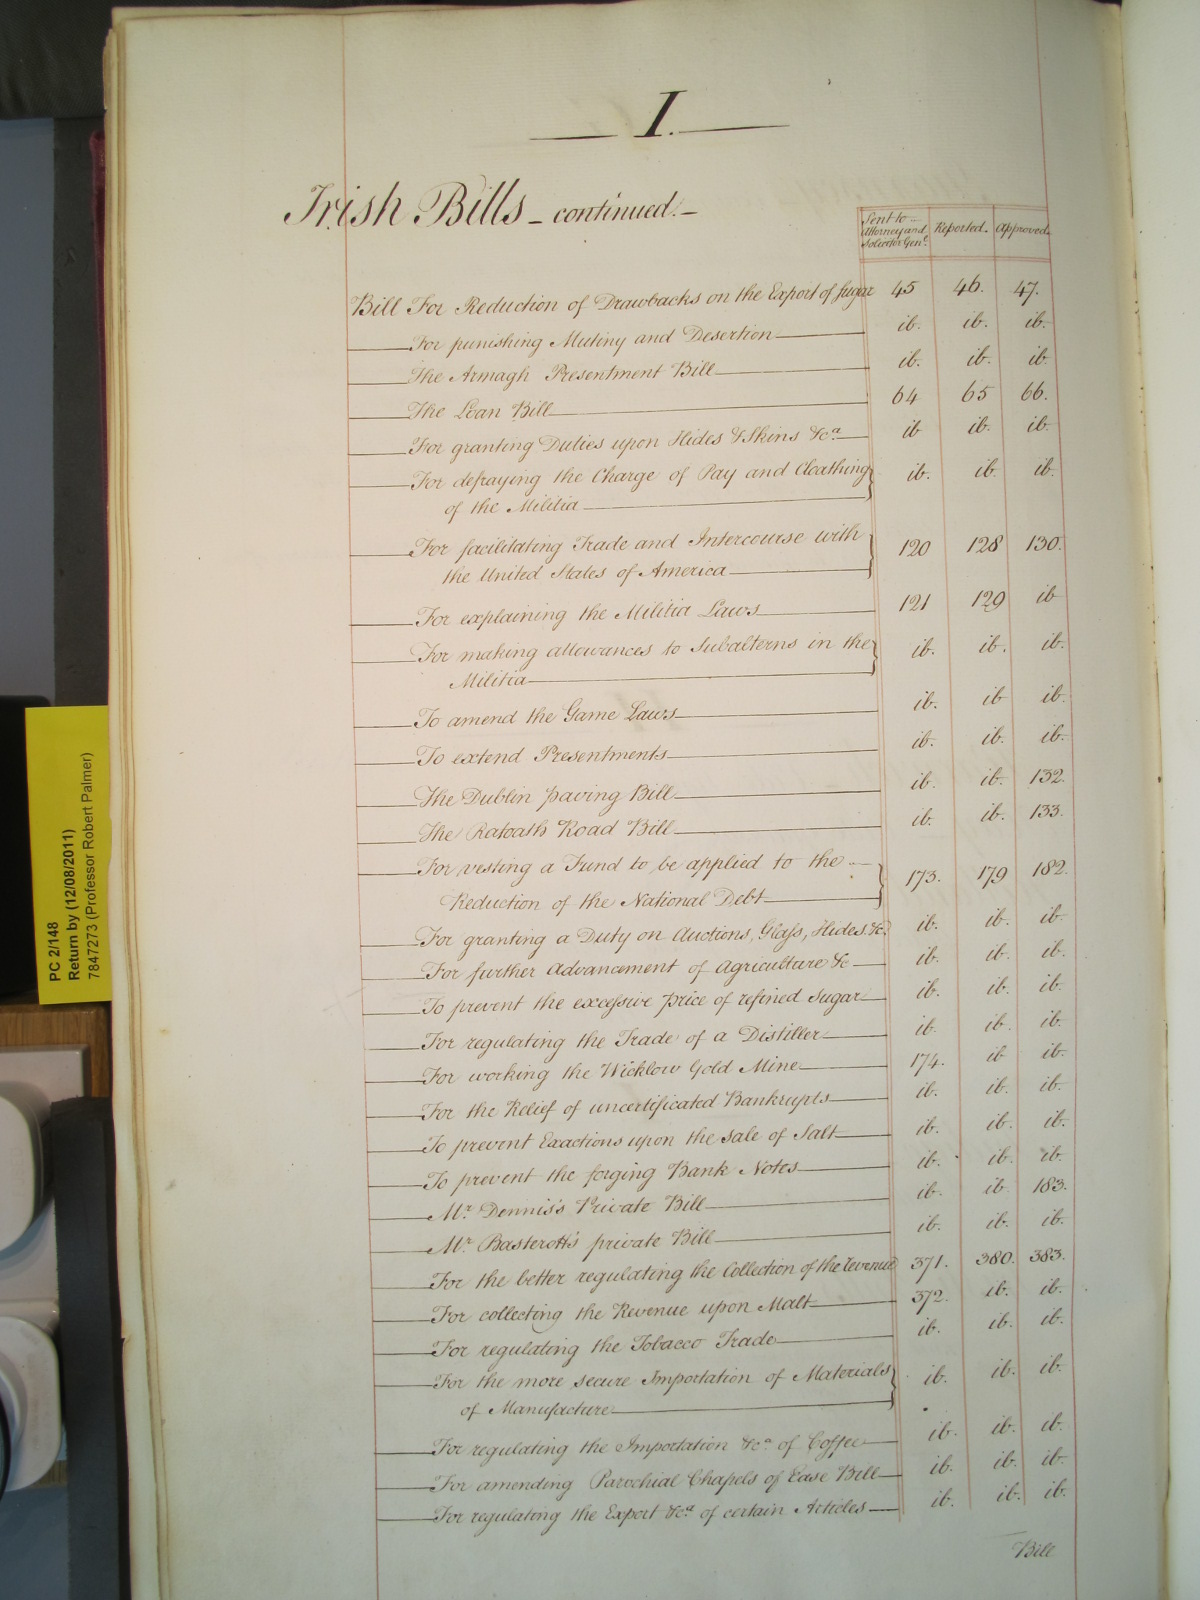 I.
Irish Bills - continued. -
Sent to Attorney and Solicitor Genl. Reported. Approved.
Bill For Reduction of Drawbacks on the Export of Sugar 45 46. 47.
For punishing Mutiny and Desertion ib. ib. ib.
The Armagh Presentment Bill ib. ib. ib
The Loan Bill 64 65 66.
For granting Duties upon Hides & Skins &ca ib ib. ib.
For defraying the Charge of Pay and Cloathing ib. ib. ib.
of the Militia
For facilitating Trade and Intercourse with 120 128 130.
the United States of America
For explaining the Militia Laws 121 129 ib
For making allowances to Subalterns in the ib. ib. ib.
Militia
To amend the Game Laws ib. ib ib.
To extend Presentments ib. ib. ib.
The Dublin paving Bill ib. ib. 132.
The Ratoath Road Bill ib. ib. 133.
For vesting a Fund to be applied to the 173. 179 182.
Reduction of the National Debt
For granting a Duty on Auctions, Glass, Hides &c. ib. ib. ib.
For further advancement of Agriculture &c ib. ib. ib.
To prevent the excessive price of refined Sugar ib. ib. ib.
For regulating the Trade of a Distiller ib. ib. ib.
For working the Wicklow Gold Mine 174. ib ib.
For the Relief of uncertificated Bankrupts ib. ib. ib.
To prevent Exactions upon the sale of Salt ib. ib. ib.
To prevent the forging Bank Notes ib. ib. ib.
Mr. Dennis's Private Bill ib. ib. 183.
Mr. Basterott's private Bill ib. ib. ib.
For the better regulating the Collection of the revenue 371. 380. 383.
For collecting the Revenue upon Malt 372. ib. ib.
For regulating the Tobacco Trade ib. ib. ib.
For the more secure Importation of Materials ib. ib. ib.
of Manufacture
For regulating the Importation &ca of Coffee ib. ib. ib.
For amending Parochial Chapels of Ease Bill ib. ib. ib.
For regulating the Export &ca of certain Articles ib. ib. ib.
Bill
PC 2/148
Return by (12/08/2011)
7847273 (Professor Robert Palmer)